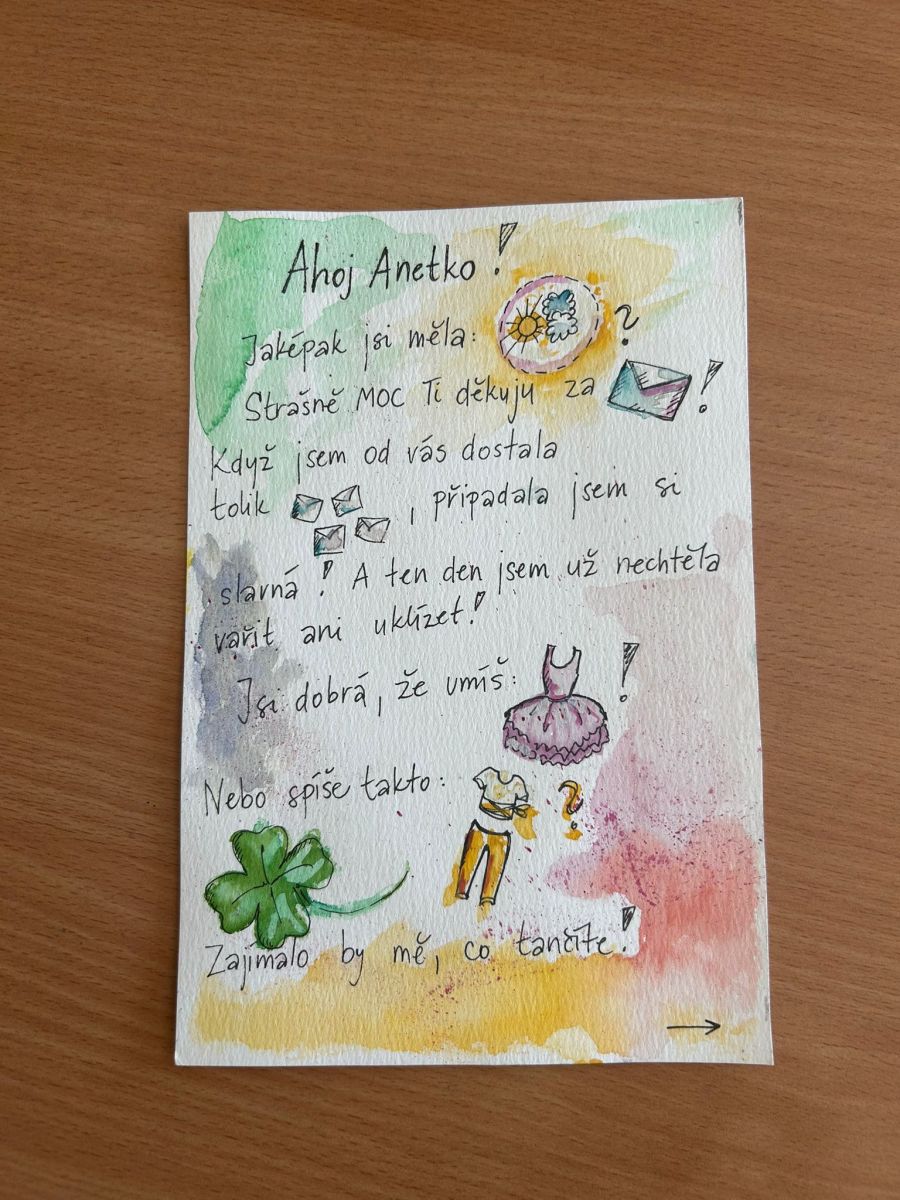 Ahoj Anetko!
Jaképak jsi měla: ?
Strašně MOC Ti děkuju za !
Když jsem od vás dostala
tolik , připadala jsem si
slavná! A ten den jsem už nechtěla
vařit ani uklízet!
Jsi dobrá, že umíš: !
Nebo spíše takto: ?
Zajímalo by mě, co tančíte!
→